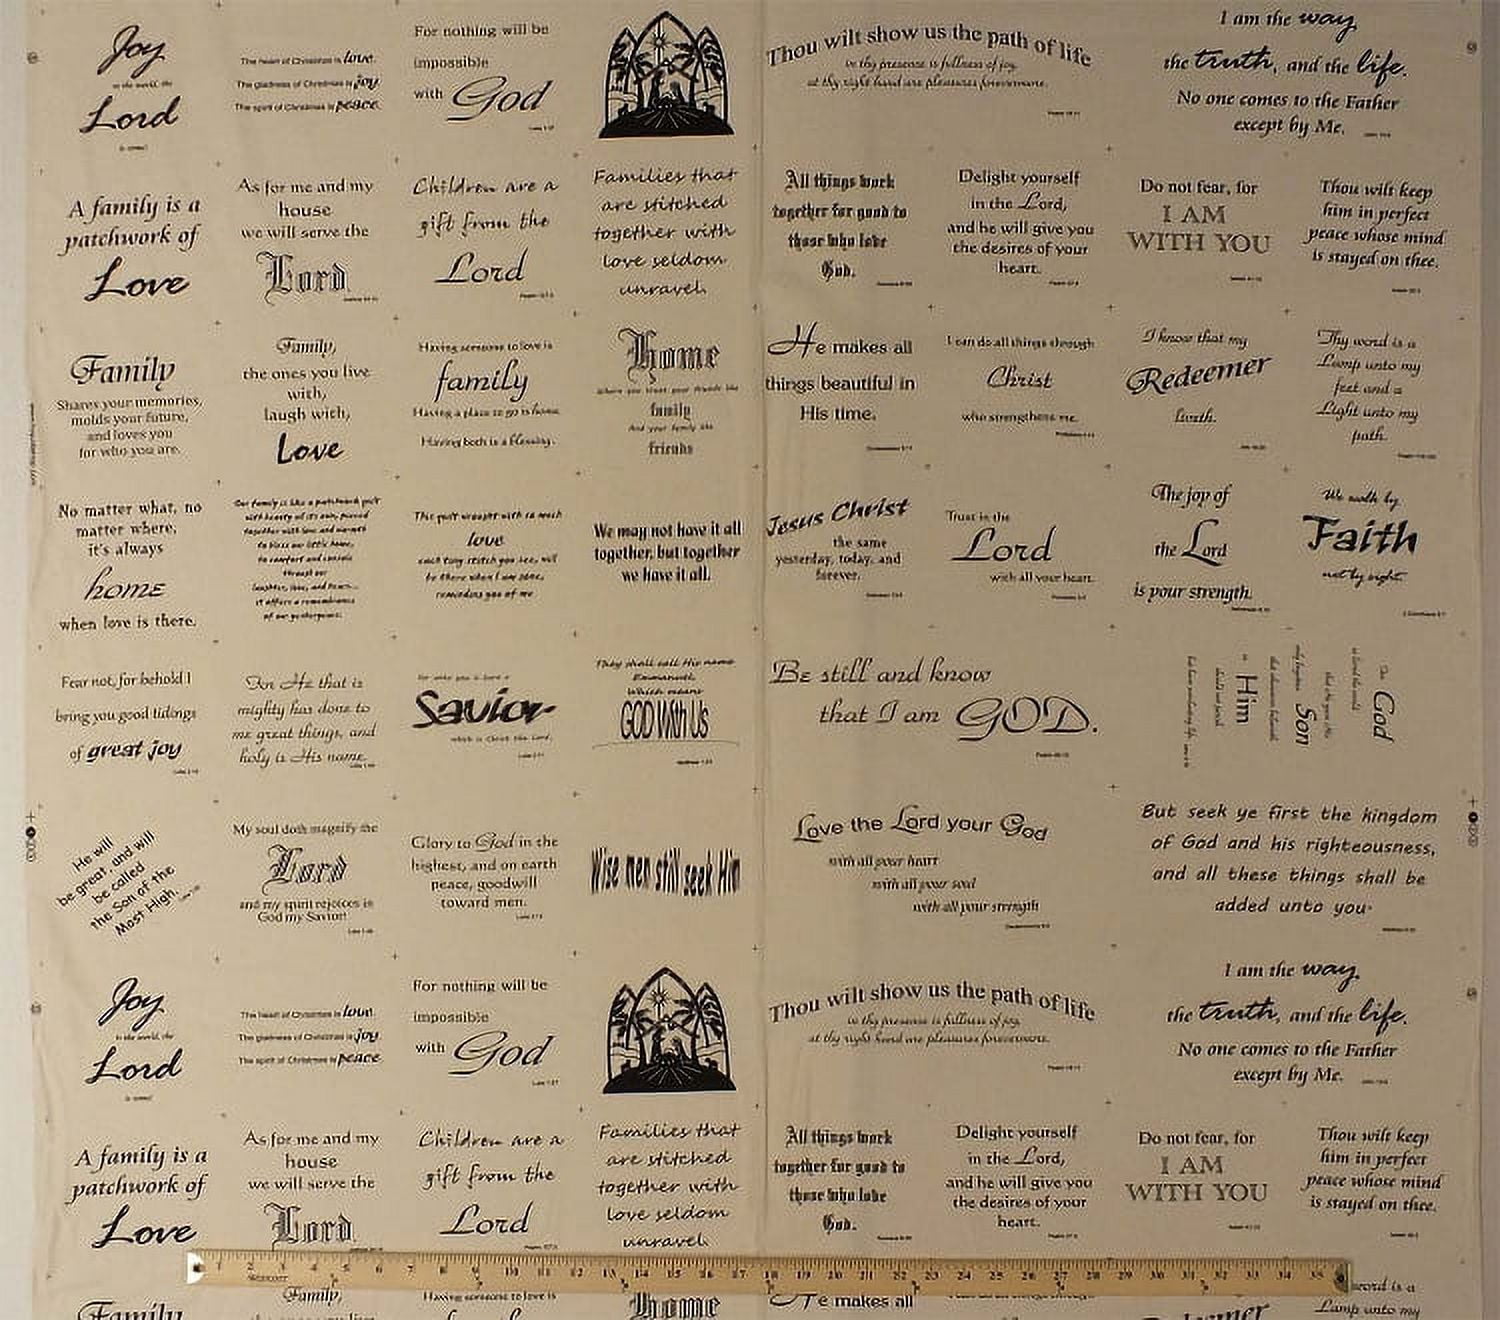 Joy
to the world, the
Lord
is come!
The heart of Christmas is love.
The gladness of Christmas is joy.
The spirit of Christmas is peace.
For nothing will be
impossible
with God
Luke 1:37
Thou wilt show us the path of life
in thy presence is fullness of joy,
at thy right hand are pleasures forevermore.
Psalm 16:11
I am the way,
the truth, and the life.
No one comes to the Father
except by Me.
John 14:6
A family is a
patchwork of
Love
As for me and my
house
we will serve the
Lord
Joshua 24:15
Children are a
gift from the
Lord
Psalm 127:3
Families that
are stitched
together with
love seldom
unravel.
All things work
together for good to
those who love
God.
Romans 8:28
Delight yourself
in the Lord,
and he will give you
the desires of your
heart.
Psalm 37:4
Do not fear, for
I AM
WITH YOU
Isaiah 41:10
Thou wilt keep
him in perfect
peace whose mind
is stayed on thee.
Isaiah 26:3
Family
Shares your memories,
molds your future,
and loves you
for who you are.
Family,
the ones you live
with,
laugh with,
Love
Having someone to love is
family
Having a place to go is home.
Having both is a blessing.
Home
Where you treat your friends like
family
And your family like
friends
He makes all
things beautiful in
His time.
Ecclesiastes 3:11
I can do all things through
Christ
who strengthens me.
Philippians 4:13
I know that my
Redeemer
liveth.
Job 19:25
Thy word is a
Lamp unto my
feet and a
Light unto my
path.
Psalm 119:105
No matter what, no
matter where,
it's always
home
when love is there.
Our family is like a patchwork quilt
with beauty of its own, pieced
together with love and warmth
to bless our little home,
to comfort and console
through our
laughter, love, and tears...
it offers a remembrance
of our yesteryears.
This quilt wrought with so much
love
each tiny stitch you see, will
be there when I am gone,
reminding you of me
We may not have it all
together, but together
we have it all.
Jesus Christ
the same
yesterday, today, and
forever.
Hebrews 13:8
Trust in the
Lord
with all your heart.
Proverbs 3:5
The joy of
the Lord
is your strength.
Nehemiah 8:10
We walk by
Faith
not by sight.
2 Corinthians 5:7
Fear not, for behold I
bring you good tidings
of great joy
Luke 2:10
For He that is
mighty has done to
me great things, and
holy is His name.
Luke 1:49
For unto you is born a
Savior
which is Christ the Lord.
Luke 2:11
They shall call His name
Emmanuel,
Which means
GOD With Us
Matthew 1:23
Be still and know
that I am GOD.
Psalm 46:10
God
so loved the world
that He gave His
only begotten Son
that whoever believeth
in Him
should not perish
but have everlasting life
He will
be great, and will
be called
the Son of the
Most High.
My soul doth magnify the
Lord
and my spirit rejoices in
God my Savior!
Luke 1:46
Glory to God in the
highest, and on earth
peace, goodwill
toward men.
Luke 2:14
Wise men still seek Him
Love the Lord your God
with all your heart
with all your soul
with all your strength
Deuteronomy 6:5
But seek ye first the kingdom
of God and his righteousness,
and all these things shall be
added unto you.
Matthew 6:33
Joy
to the world, the
Lord
is come!
The heart of Christmas is love.
The gladness of Christmas is joy.
The spirit of Christmas is peace.
For nothing will be
impossible
with God
Luke 1:37
Thou wilt show us the path of life
in thy presence is fullness of joy,
at thy right hand are pleasures forevermore.
Psalm 16:11
I am the way,
the truth, and the life.
No one comes to the Father
except by Me.
John 14:6
A family is a
patchwork of
Love
As for me and my
house
we will serve the
Lord
Children are a
gift from the
Lord
Psalm 127:3
Families that
are stitched
together with
love seldom
unravel.
All things work
together for good to
those who love
God.
Romans 8:28
Delight yourself
in the Lord,
and he will give you
the desires of your
heart.
Psalm 37:4
Do not fear, for
I AM
WITH YOU
Isaiah 41:10
Thou wilt keep
him in perfect
peace whose mind
is stayed on thee.
Isaiah 26:3
1 2 3 4 5 6 7 8 9 10 11 12 13 14 15 16 17 18 19 20 21 22 23 24 25 26 27 28 29 30 31 32 33 34 35
Family
Family,
Having someone to love is
Home
He makes all
Redeemer
word is a
Lamp unto my